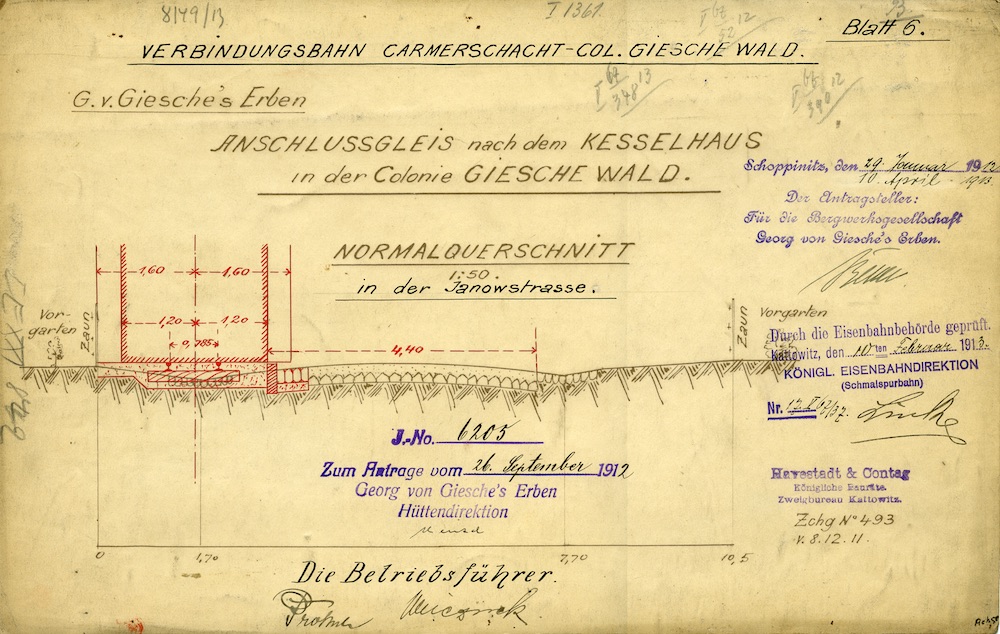 8149/13
I 1361.
Blatt 6.
VERBINDUNGSBAHN CARMERSCHACHT-COL. GIESCHE WALD.
G. v. Giesche's Erben
ANSCHLUSSGLEIS nach dem KESSELHAUS
in der Colonie GIESCHE WALD.
Schoppinitz, den 29. Januar 1912
10. April 1913
Der Antragsteller:
Für die Bergwerksgesellschaft
Georg von Giesche's Erben.
NORMALQUERSCHNITT
1:50.
in der Janowstrasse.
1,60 1,60
1,20 1,20
0,785
4,40
Vor-
garten
Zaun
Zaun
Vorgarten
Durch die Eisenbahnbehörde geprüft.
Kattowitz, den 10ten Februar 1913.
KÖNIGL. EISENBAHNDIREKTION
(Schmalspurbahn)
Nr.
J.-No. 6205
Zum Antrage vom 26. September 1912
Georg von Giesche's Erben
Hüttendirektion
Havestadt & Contag
Königliche Bauräte.
Zweigbureau Kattowitz.
Zchg No 493
v. 8.12.11.
0 1,70 7,70 10,5
Die Betriebsführer.